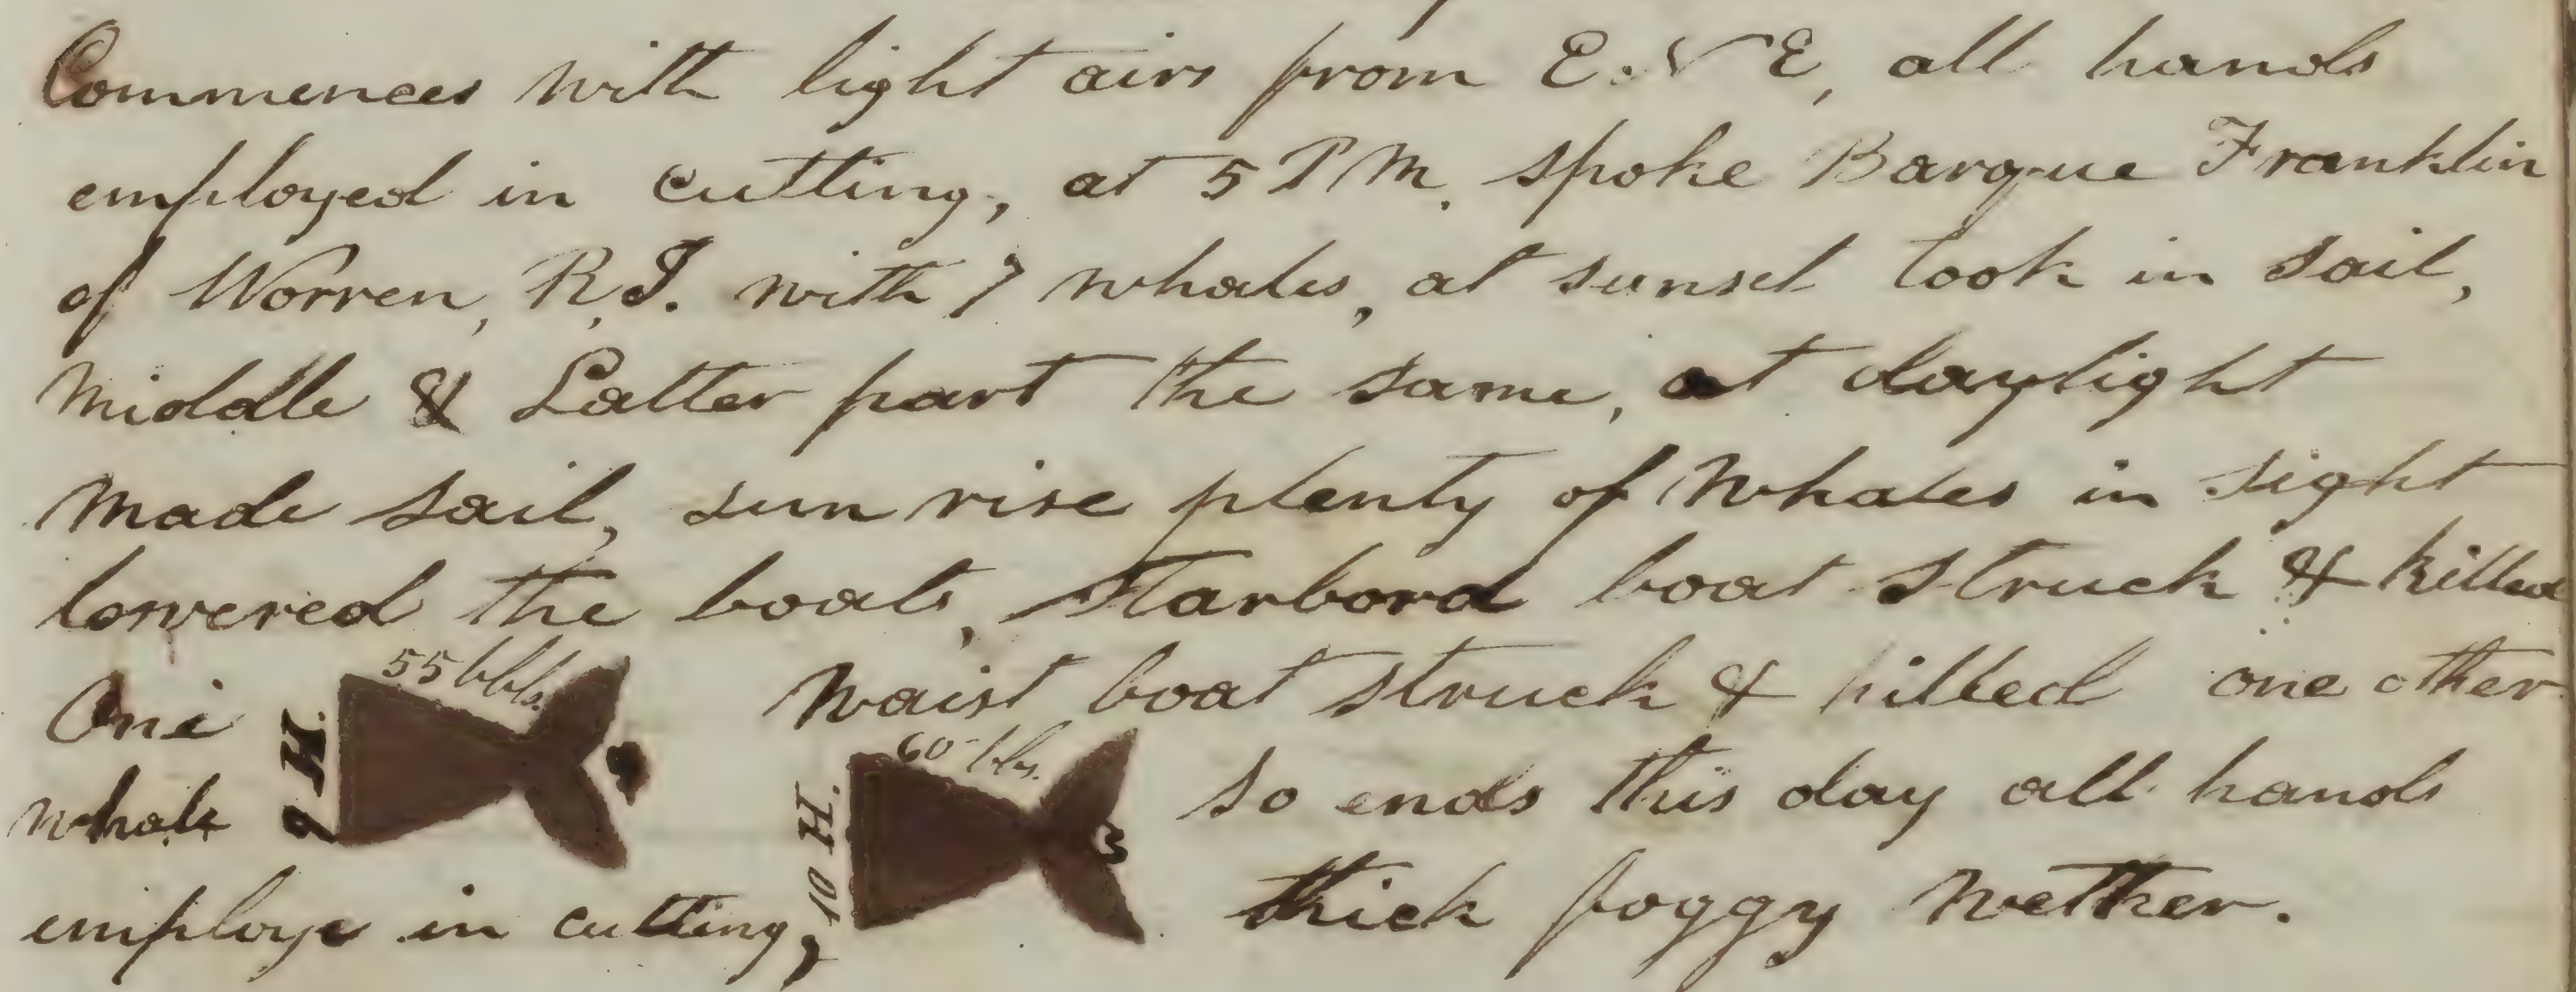 Commences with light airs from E.N E, all hands
employed in cutting, at 5 PM. spoke Barque Franklin
of Worren, R.I. with 7 whales, at sunset took in sail,
Middle & Latter part the same, at daylight
Made sail, sun rise plenty of Whales in sight
lowered the boats, Starbord boat struck & killed
One 9 H. 55 bbls. Waist boat struck & killed one other
whale 10 H. 60 bbs. So ends this day all hands
employe in cutting, thick foggy Wether.